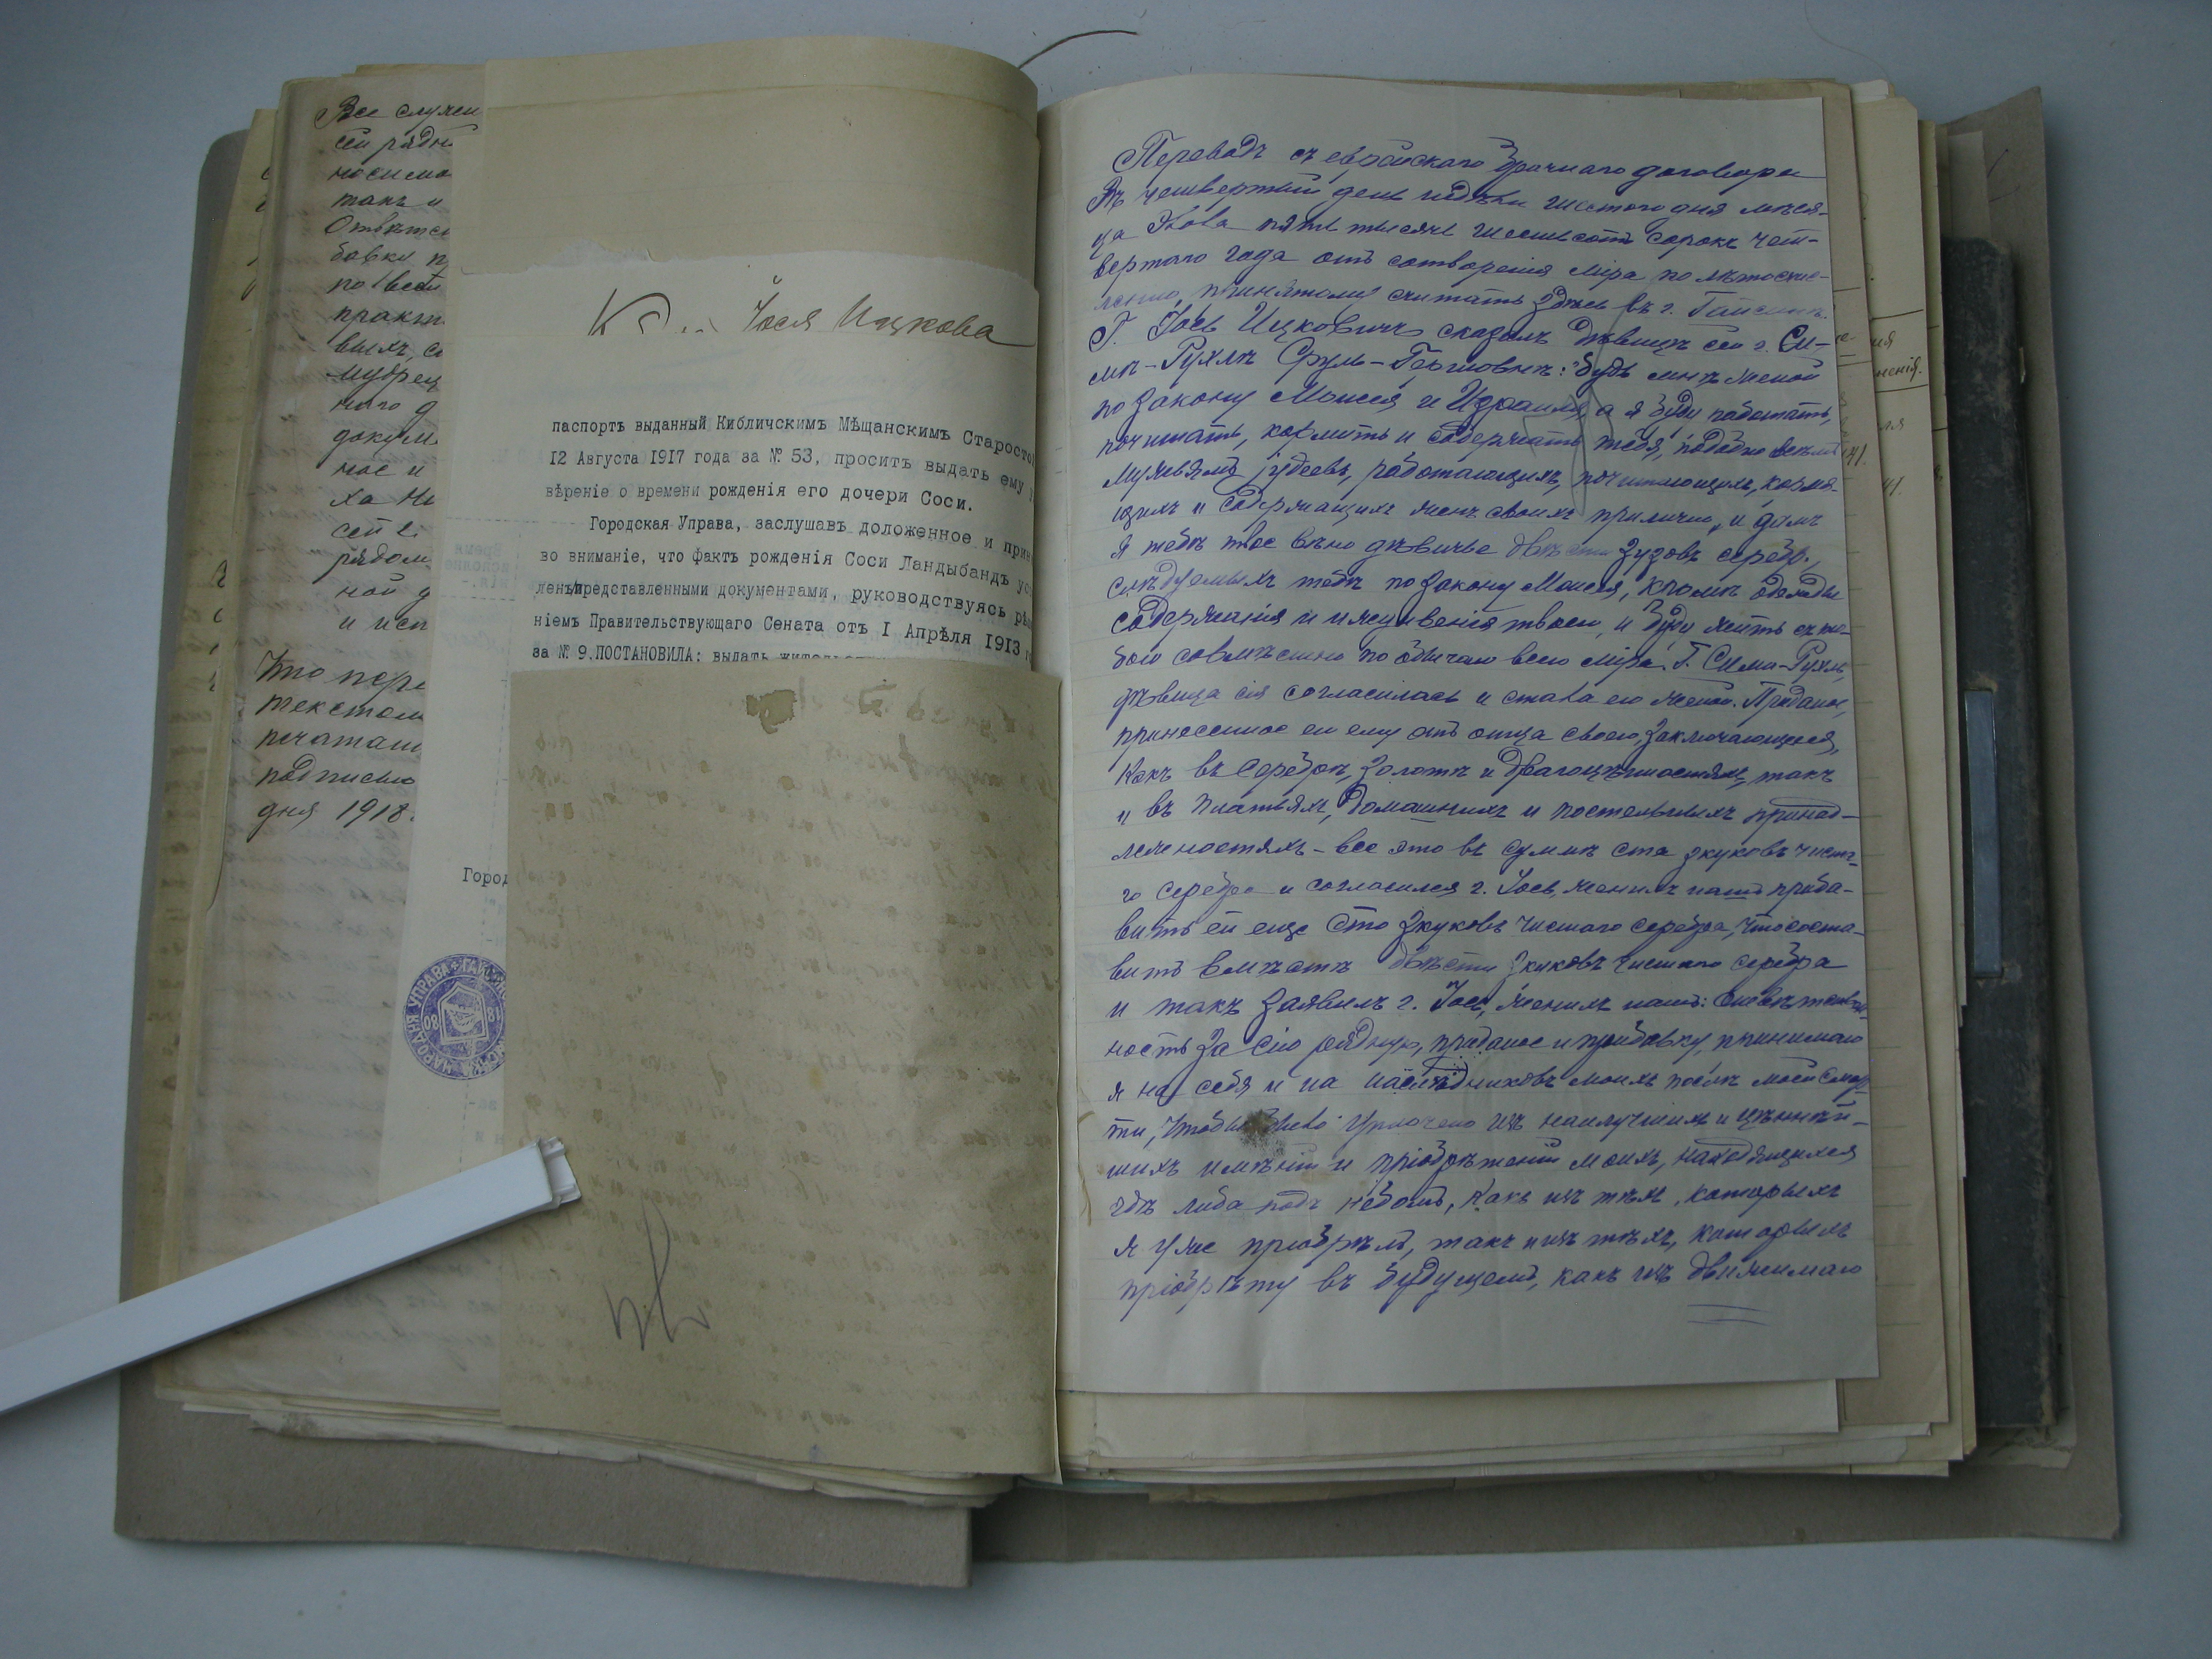 Все случаи
сей рядн
носимо
такъ и
Отвѣтс
бавку п
по всей
практ
выхъ, с
мудрец
наго д
докум
ное и
ха Ни
сей
рядом
ной д
и исп
Что пере
текстом
печатаи
подписью
дня 1918.
Іося Ицкова
паспортъ выданный Кибличскимъ Мѣщанскимъ Старосто
12 Августа 1917 года за № 53, проситъ выдать ему
вѣреніе о времени рожденія его дочери Соси.
Городская Управа, заслушавъ доложенное и прин
во вниманіе, что фактъ рожденія Соси Ландыбандъ ус
ленъ представленными документами, руководствуясь рѣ
ніемъ Правительствующаго Сената отъ I Апрѣля 1913 г
за № 9, ПОСТАНОВИЛА: выдать
Город
НАРОДНЯ УПРАВА ГАЙС
Переводъ съ еврейскаго брачнаго договора
Въ четвертый день недѣли шестого дня мѣся-
ца пять тысячъ шестьсотъ сорокъ чет-
вертаго года отъ сотворенія міра по лѣтосчис-
ленію, принятому считать здѣсь въ г. Гайсинѣ.
Г. Іось Ицковичъ сказалъ дѣвицѣ сей г. Си-
мѣ-Рухлѣ Сруль-Гершовнѣ: "Будь мнѣ женой
по закону Моисея и Израиля, а я буду работать,
почитать, кормить и содержать тебя, подобно всѣмъ
мужьямъ іудеевъ, работающихъ, почитающихъ, кормя-
щихъ и содержащихъ женъ своихъ прилично, и дамъ
я тебѣ твое вѣно дѣвичье двѣсти зузовъ серебр.,
слѣдуемыхъ тебѣ по закону Моисея, кромѣ одежды
содержанія и твоего, и буду жить съ то-
бою совмѣстно по обычаю всего міра". Г. Сима-Рухля,
дѣвица сія согласилась и стала его женой. Приданое,
принесенное ею ему отъ отца своего, заключающееся,
какъ въ серебрѣ, золотѣ и драгоцѣнностяхъ, такъ
и въ платьяхъ, домашнихъ и постельныхъ принад-
лежностяхъ - все это въ суммѣ ста зкуковъ чиста-
го серебра и согласился г. Іось, женихъ нашъ приба-
вить ей еще сто зкуковъ чистаго серебра, что соста-
витъ вмѣстѣ двѣсти зкуковъ чистаго серебра
и такъ заявилъ г. Іось, женихъ нашъ: отвѣтствен-
ность за сію рядную, приданое и прибавку, принимаю
я на себя и на наслѣдниковъ моихъ послѣ моей смер-
ти, чтобы было уплочено изъ наилучшихъ и цѣннѣй-
шихъ имѣній и пріобрѣтеній моихъ, находящихся
гдѣ либо подъ небомъ, какъ изъ тѣхъ, которыхъ
я уже пріобрѣлъ, такъ и изъ тѣхъ, которыхъ
пріобрѣту въ будущемъ, какъ изъ движимаго